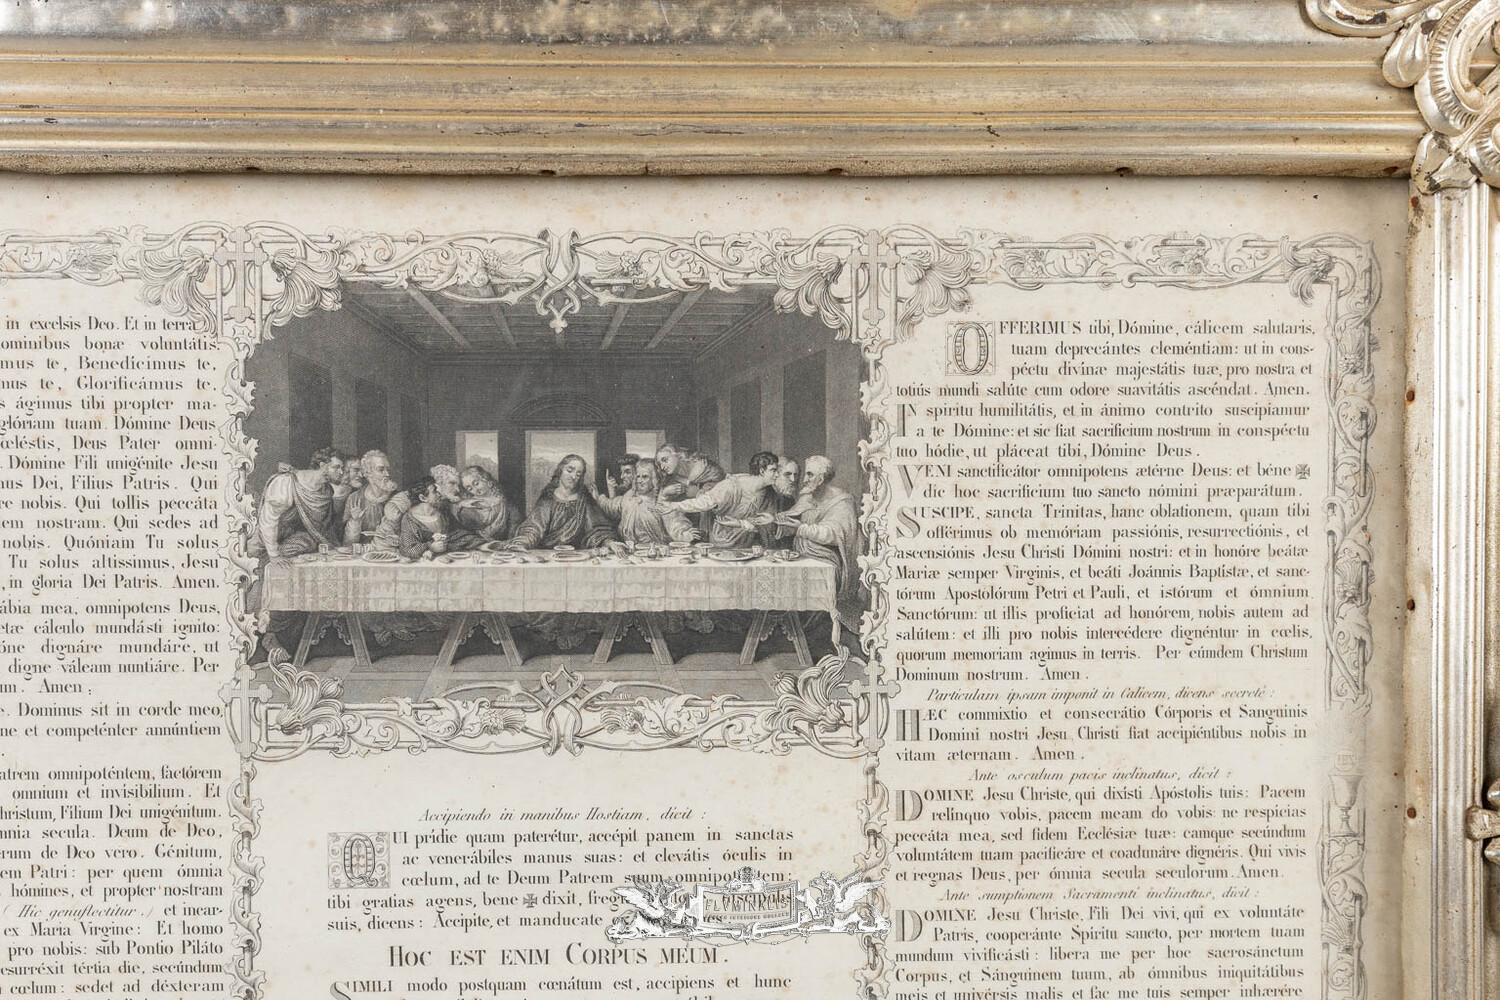 in excelsis Deo. Et in terra
ominibus bonæ voluntátis.
mus te, Benedícimus te,
mus te, Glorificámus te.
s ágimus tibi propter ma-
glóriam tuam. Dómine Deus
cœléstis, Deus Pater omni-
. Dómine Fili unigénite Jesu
nus Dei, Filius Patris. Qui
re nobis. Qui tollis peccáta
em nostram. Qui sedes ad
nobis. Quóniam Tu solus
Tu solus altissimus, Jesu
, in gloria Dei Patris. Amen.
ábia mea, omnipotens Deus,
etæ cálculo mundásti ignito:
óne dignáre mundáre, ut
digne váleam nuntiáre. Per
um. Amen:
e. Dominus sit in corde meo,
ne et competénter annúntiem
atrem omnipoténtem, factórem
omnium et invisibilium. Et
hristum, Filium Dei unigénitum.
mnia secula. Deum de Deo,
erum de Deo vero. Génitum,
em Patri: per quem ómnia
hómines, et propter nostram
(Hic genuflectitur.) et incar-
ex Maria Virgine: Et homo
pro nobis: sub Pontio Piláto
esurréxit tértia die, secúndum
cœlum: sedet ad déxteram
Accipiendo in manibus Hostiam, dicit:
QUI prídie quam paterétur, accépit panem in sanctas
ac venerábiles manus suas: et elevátis óculis in
cœlum, ad te Deum Patrem suum omnipotentem:
tibi gratias agens, bene ✠ dixit, fregit discipulis
suis, dicens: Accipite, et manducate
HOC EST ENIM CORPUS MEUM.
SIMILI modo postquam cœnátum est, accipiens et hunc
FLUMINALIS
OFFERIMUS tibi, Dómine, cálicem salutaris,
tuam deprecántes cleméntiam: ut in cons-
péctu divinæ majestátis tuæ, pro nostra et
totiús mundi salúte cum odore suavitátis ascéndat. Amen.
IN spiritu humilitátis, et in ánimo contrito suscipiamur
a te Dómine: et sic fiat sacrificium nostrum in conspéctu
tuo hódie, ut pláceat tibi, Dómine Deus.
VENI sanctificátor omnipotens ætérne Deus: et béne ✠
dic hoc sacrificium tuo sancto nómini præparátum.
SUSCIPE, sancta Trinitas, hanc oblationem, quam tibi
offérimus ob memóriam passiónis, resurrectiónis, et
ascensiónis Jesu Christi Dómini nostri: et in honóre beátæ
Mariæ semper Virginis, et beáti Joánnis Baptístæ, et sanc-
tórum Apostolórum Petri et Pauli, et istórum et ómnium
Sanctórum: ut illis proficiat ad honórem, nobis autem ad
salútem: et illi pro nobis intercédere dignéntur in cœlis,
quorum memoriam agimus in terris. Per eúmdem Christum
Dominum nostrum. Amen.
Particulam ipsam imponit in Calicem, dicens secretè:
HÆC commixtio et consecrátio Córporis et Sanguinis
Domini nostri Jesu Christi fiat accipiéntibus nobis in
vitam æternam. Amen.
Ante osculum pacis inclinatus, dicit:
DOMINE Jesu Christe, qui dixísti Apóstolis tuis: Pacem
relinquo vobis, pacem meam do vobis: ne respícias
peccáta mea, sed fidem Ecclésiæ tuæ: eamque secúndum
voluntátem tuam pacificáre et coadunáre dignéris. Qui vivis
et regnas Deus, per ómnia secula seculorum. Amen.
Ante sumptionem Sacramenti inclinatus, dicit:
DOMINE Jesu Christe, Fili Dei vivi, qui ex voluntáte
Patris, cooperánte Spíritu sancto, per mortem tuam
mundum vivificásti: libera me per hoc sacrosánctum
Corpus, et Sánguinem tuum, ab ómnibus iniquitátibus
meis et univérsis malis et fac me tuis semper inhærére